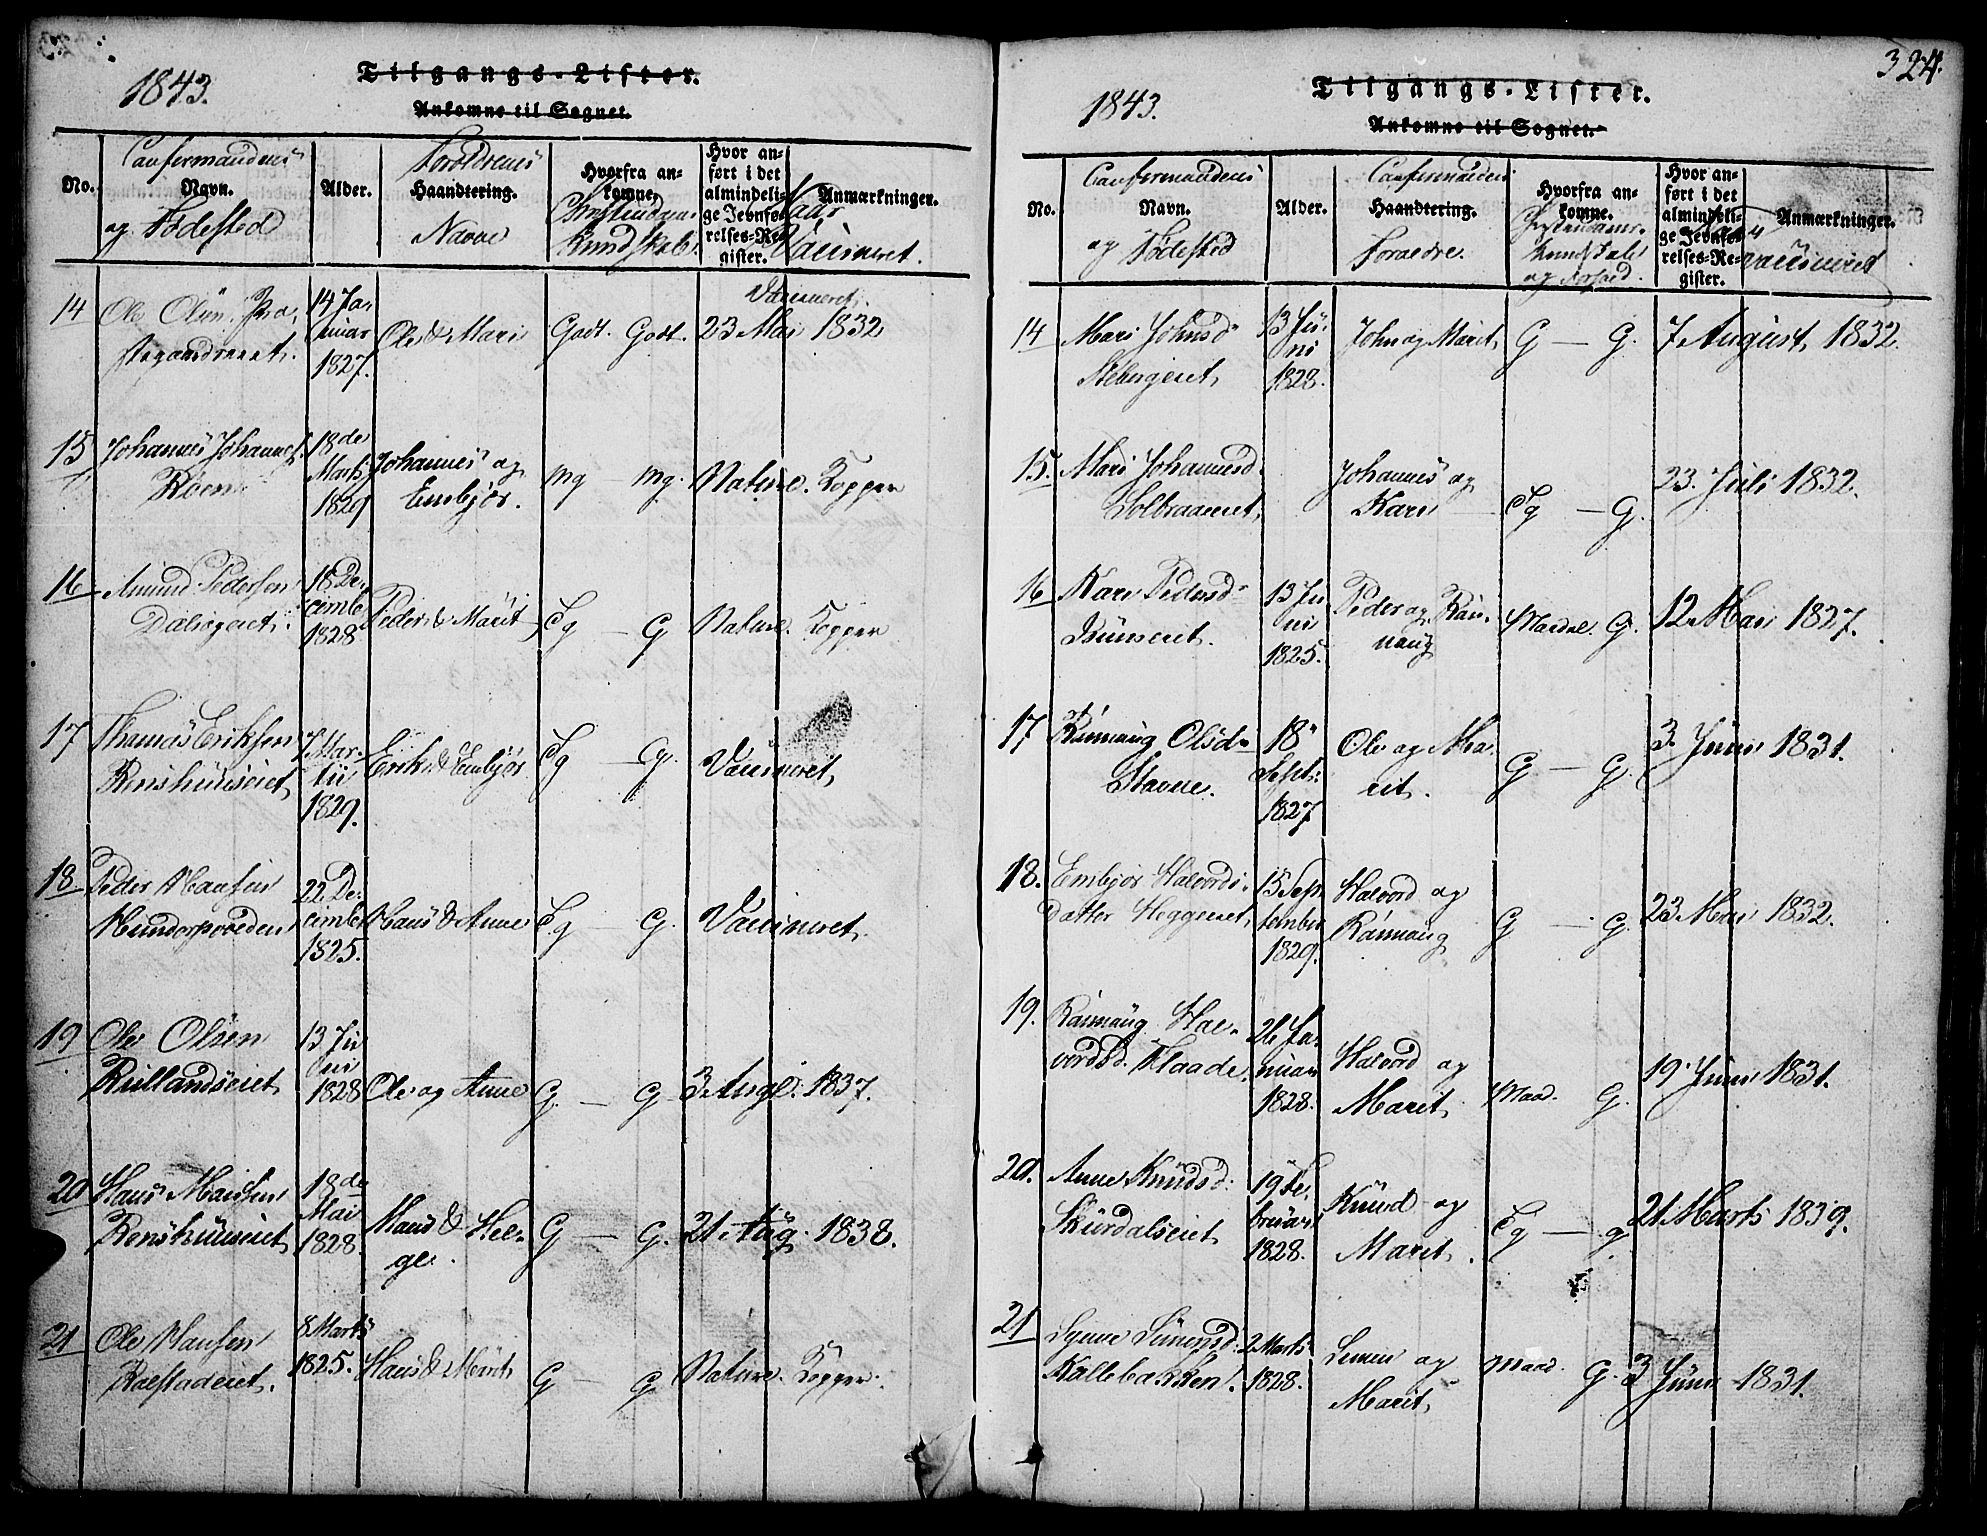 324.
1843.
Tilgangs-Lister.
Ankomne til Sognet.
No.
Confirmandens
Navn.
og Fødested
Alder.
Forældrenes
Haandtering.
Navne
Hvorfra an-
komne.
Christendoms
Kundskab
Hvor an-
ført i det
almindeli-
ge Jevnfø-
relses-Re-
gister.
Anmærkninger.
Naar
Vaccineret.
14 Ole Olsen
14 Ja-
nuar
1827.
Ole & Mari
Godt. Godt.
Vaccineret.
23 Mai 1832
15 Johannes Johannes.
Röen
18de
Marts
1829
Johannes og
Embjör.
mg mg.
Naturl. Kopper
16 Amund Pedersen
18 De-
cembr
1828
Peder & Marit
Tg — G
Naturl. Kopper
17 Thomas Eriksen
7 Mar-
tii
1829.
Erik & Embjör
Tg — G.
Vaccineret
18 Peder Hansen
22 De-
cembr
1825.
Hans & Anne
Tg — G.
Vaccineret.
19 Ole Olsen
Rullandseiet
13 Ju-
ni
1828
Ole og Anne
G. — G
3 Augt. 1837.
20 Hans Hansen
18de
Mai
1828.
Hans & Hel-
ge.
G — G.
21 Aug. 1838.
21 Ole Hansen
8 Marts
1825.
Hans & Marit
G — G
Naturl. Kopper.
1843.
Tilgangs-Lister.
Ankomne til Sognet.
No.
Confirmandens
Navn.
og Fødested
Alder.
Confirmandens
Haandtering.
Foraeldre.
Hvorfra an-
komne.
Christendoms-
Kundskab
og Forhold.
Hvor an-
ført i det
almindeli-
ge Jevnfø-
relses-Re-
gister.
Anmærkninger.
Naar
vaccineret
14 Mari Johnsd
13 Ju-
ni
1828.
John og Marit
G — G.
7 August 1832.
15. Mari Johannesd.
Solbraaeiet
Johannes og
Kari
Tg — G.
23. Juli 1832.
16 Kari Pedersd
13 Ju-
ni
1825.
Peder og Rön-
naug
Maadel. G.
12 Mai 1827.
17 Rönnaug Olsd.
Stavne.
18
Sept:
1827
Ole og Ma-
rit.
G — G.
3 Juni 1831.
18. Embjör Halvords-
datter Heggeeiet
15 Sep-
tember
1829.
Halvord og
Rönnaug
G — G.
23 Mai 1832.
19. Rönnaug Hal-
vordsd. Flaade.
26 Ja-
nuar
1828.
Halvord og
Marit
Maad. G.
19 Juni 1831.
20. Anne Knudsd:
Skurdalseiet
19 Fe-
bruar
1828.
Knud og
Marit.
Tg — g.
21 Marts 1839.
21 Synne Simensd:
Kallebakken.
2 Marts
1828.
Simen og
Marit
Maad. G.
3 Juni 1831.